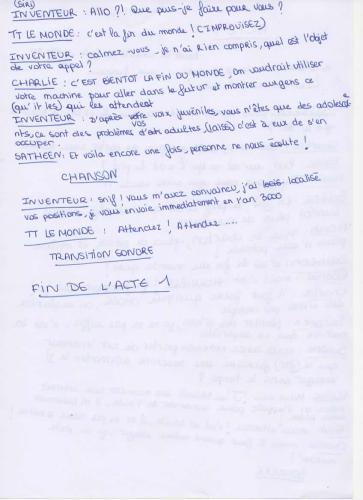 (Siri)
INVENTEUR : Allo ?! Que puis-je faire pour vous ?
TT LE MONDE : c'est la fin du monde ! (IMPROVISEZ)
INVENTEUR : calmez-vous, je n'ai Rien compris, quel est l'objet
de votre appel ?
CHARLIE : C'EST BIENTOT LA FIN DU MONDE, on voudrait utiliser
votre machine pour aller dans le futur et montrer aux gens ce
(qu'il les) qui les attendent
INVENTEUR : D'après vos voix juvéniles, vous n'êtes que des adolesce
nts, ce sont des problèmes d'ats adultes, (laiss) c'est à eux de s'en
occuper.
SATHEEN : Et voila encore une fois, personne ne nous écoute !
CHANSON
INVENTEUR : snif ! vous m'avez convaincu, j'ai localisé
vos positions, je vous envoie immédiatement en l'an 3000
TT LE MONDE : Attendez ! Attendez ....
TRANSITION SONORE
FIN DE L'ACTE 1